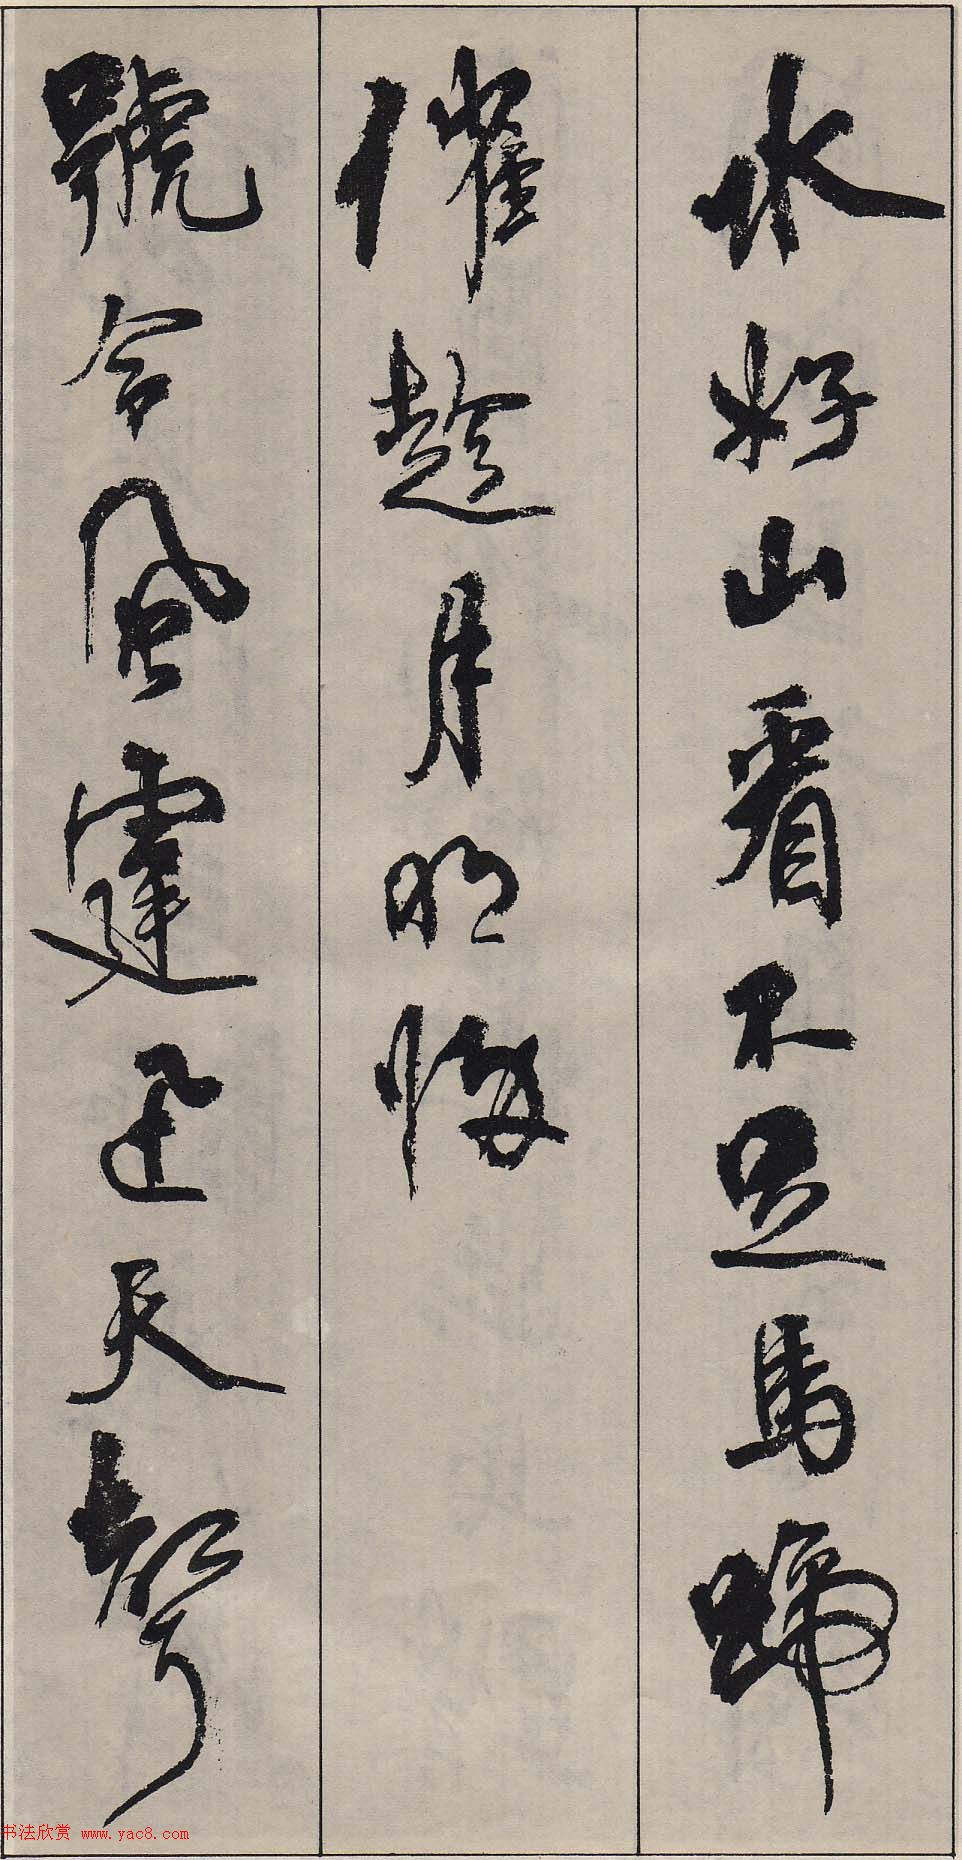 水好山看不足馬蹄
催趁月明歸
號令風霆迅天聲
书法欣赏 www.yac8.com